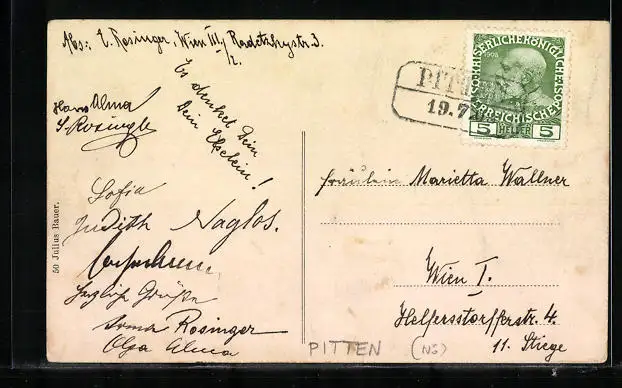 Abs: E. Rosinger, Wien III/2, Radetzkystr. 3.
Es denket Dein
Dein Eselein!
Hans Alma
Sofia
Judith Naglos.
herzliche Grüße
Rosinger
Olga Alma
50 Julius Bauer.
PITTEN
19.7
1908
KAISERLICHE KÖNIGLICHE
ÖSTERREICHISCHE
5 HELLER 5
Fräulein Marietta Wallner
Wien I.
Helferstorferstr. 4.
11. Stiege
PITTEN (NÖ)